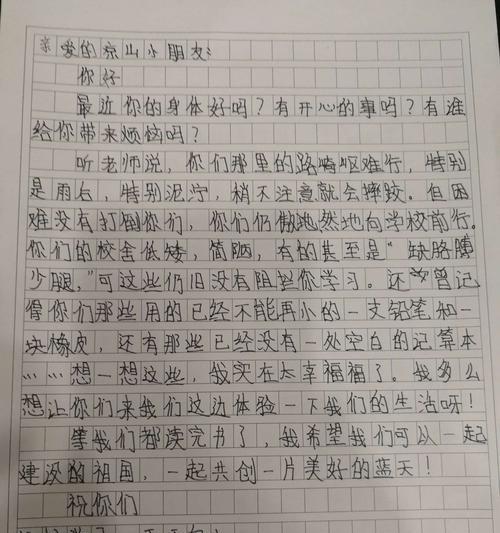 亲爱的凉山小朋友:
你好
最近你的身体好吗?有开心的事吗?有谁
给你带来烦恼吗?
听老师说,你们那里的路崎岖难行,特别
是雨后,特别泥泞,稍不注意就会摔跤。但困
难没有打倒你们,你们仍傲然地向学校前行。
你们的校舍低矮,简陋,有的甚至是“缺胳膊
少腿,”可这些仍旧没有阻挡你学习。还曾记
得你们那些用的已经不能再小的一支铅笔和一
块橡皮,还有那些已经没有一处空白的记算本
……想一想这些,我实在太幸福福了。我多么
想让你们来我们这边体验一下我们的生活呀!
等我们都读完书了,我希望我们可以一起
建设的祖国,一起共创一片美好的蓝天!
祝你们